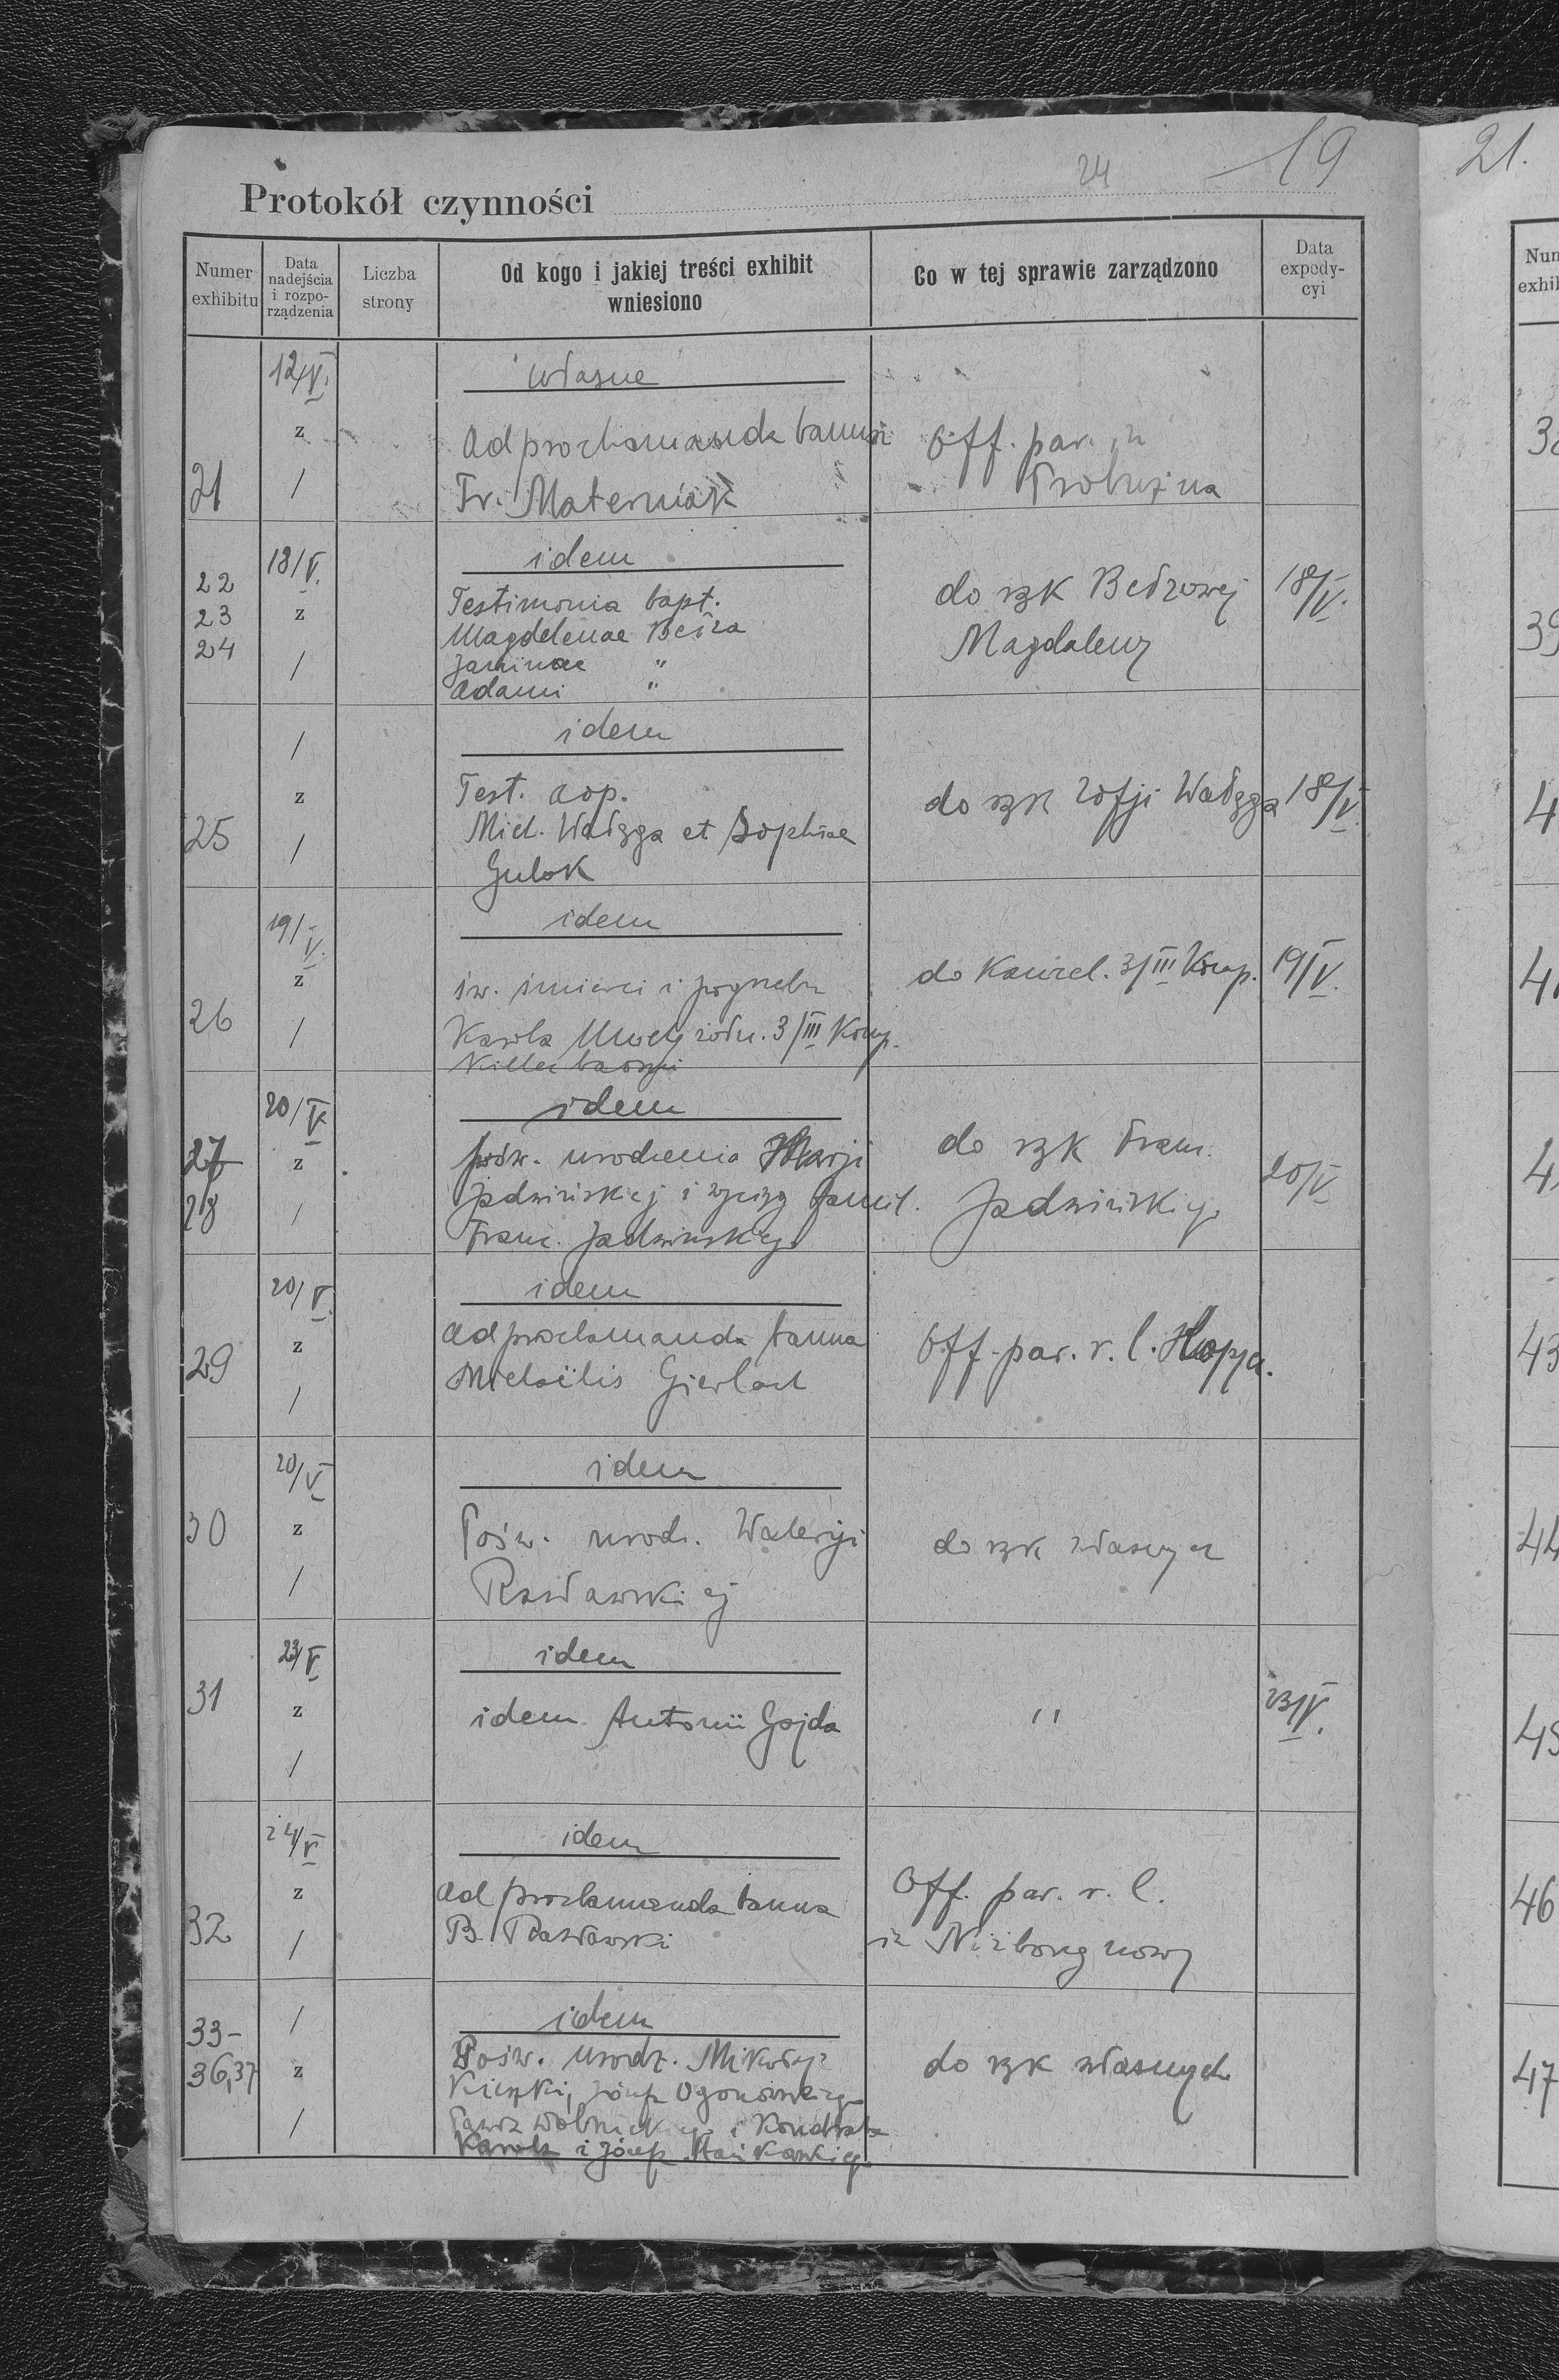 24 19
Protokół czynności
Numer exhibitu
Data nadejścia i rozporządzenia
Liczba strony
Od kogo i jakiej treści exhibit wniesiono
Co w tej sprawie zarządzono
Data expedycyi
12/V. własne
z Ad proclamanda banna Off. par. in
21 / Fr. Materniak Probużna
18/V. idem
22 Testimonia bapt. do rąk Bełzowej 18/V.
23 z Magdelenae Bełza Magdaleny
24 / Janinae "
Adami "
/ idem
z Test. cop. do rąk Zofji Wałęga 18/V
25 / Mich. Wałęga et Sophiae
Gulok
19/V. idem
z św. śmierci i pogrzebu do Kancel. 3/III Komp. 19/V.
26 / Karola żołn. 3/III Komp.
20/V idem
27 z pośw. urodzenia Marji do rąk Franc. 20/V
28 / Jadwińskiej i wyciąg famil. Jadwińskiego
Franc. Jadwińskiego
20/V idem
z Ad proclamanda banna Off. par. r. l.
29 / Michaëlis Gierlach
20/V idem
30 z Pośw. urodz. Walerji do rąk własnych
/ Rasławskiej
23/V idem
31 z idem Antonii Gojda " 23/V.
/
24/V idem
z Ad proclamanda banna Off. par. r. l.
32 / B. Rasławski in Niżborg nowy
/ idem
33- Pośw. urodz. Mikołaja do rąk własnych
36,37 z Józefa Ogonowskiego
/ i Kondrata
Karola i Józefa
21.
Num
exhib
38
39
4
4
4
43
44
45
46
47